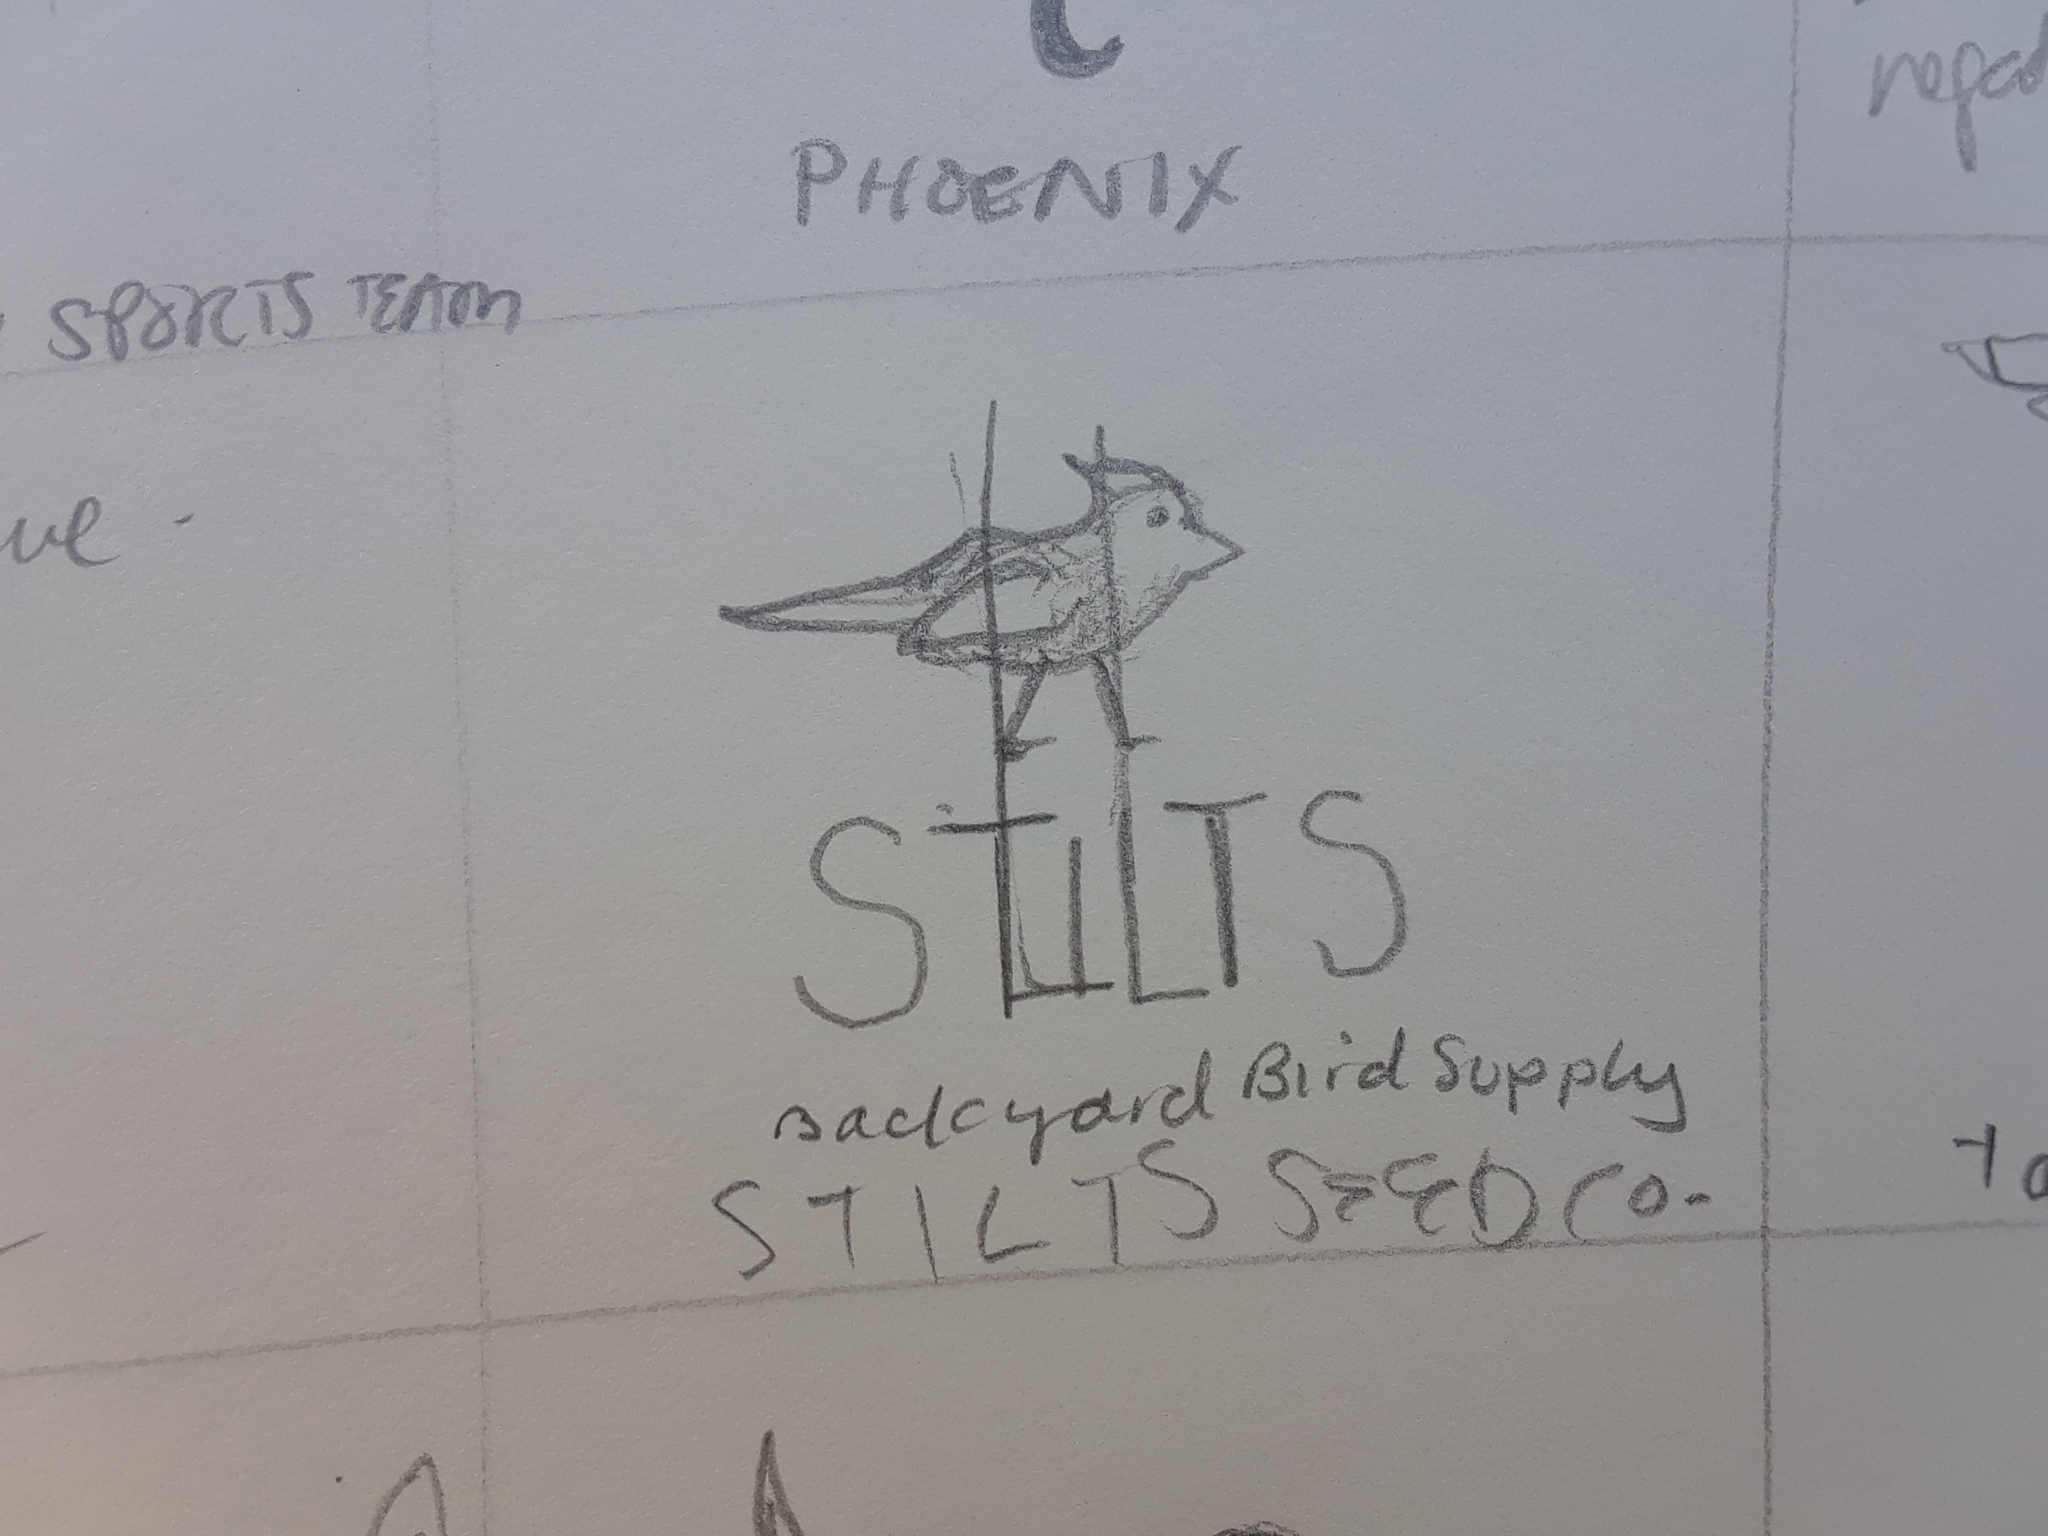 PHOENIX
SPORTS TEAM
STILTS
Backyard Bird Supply
STILTS SEED CO.